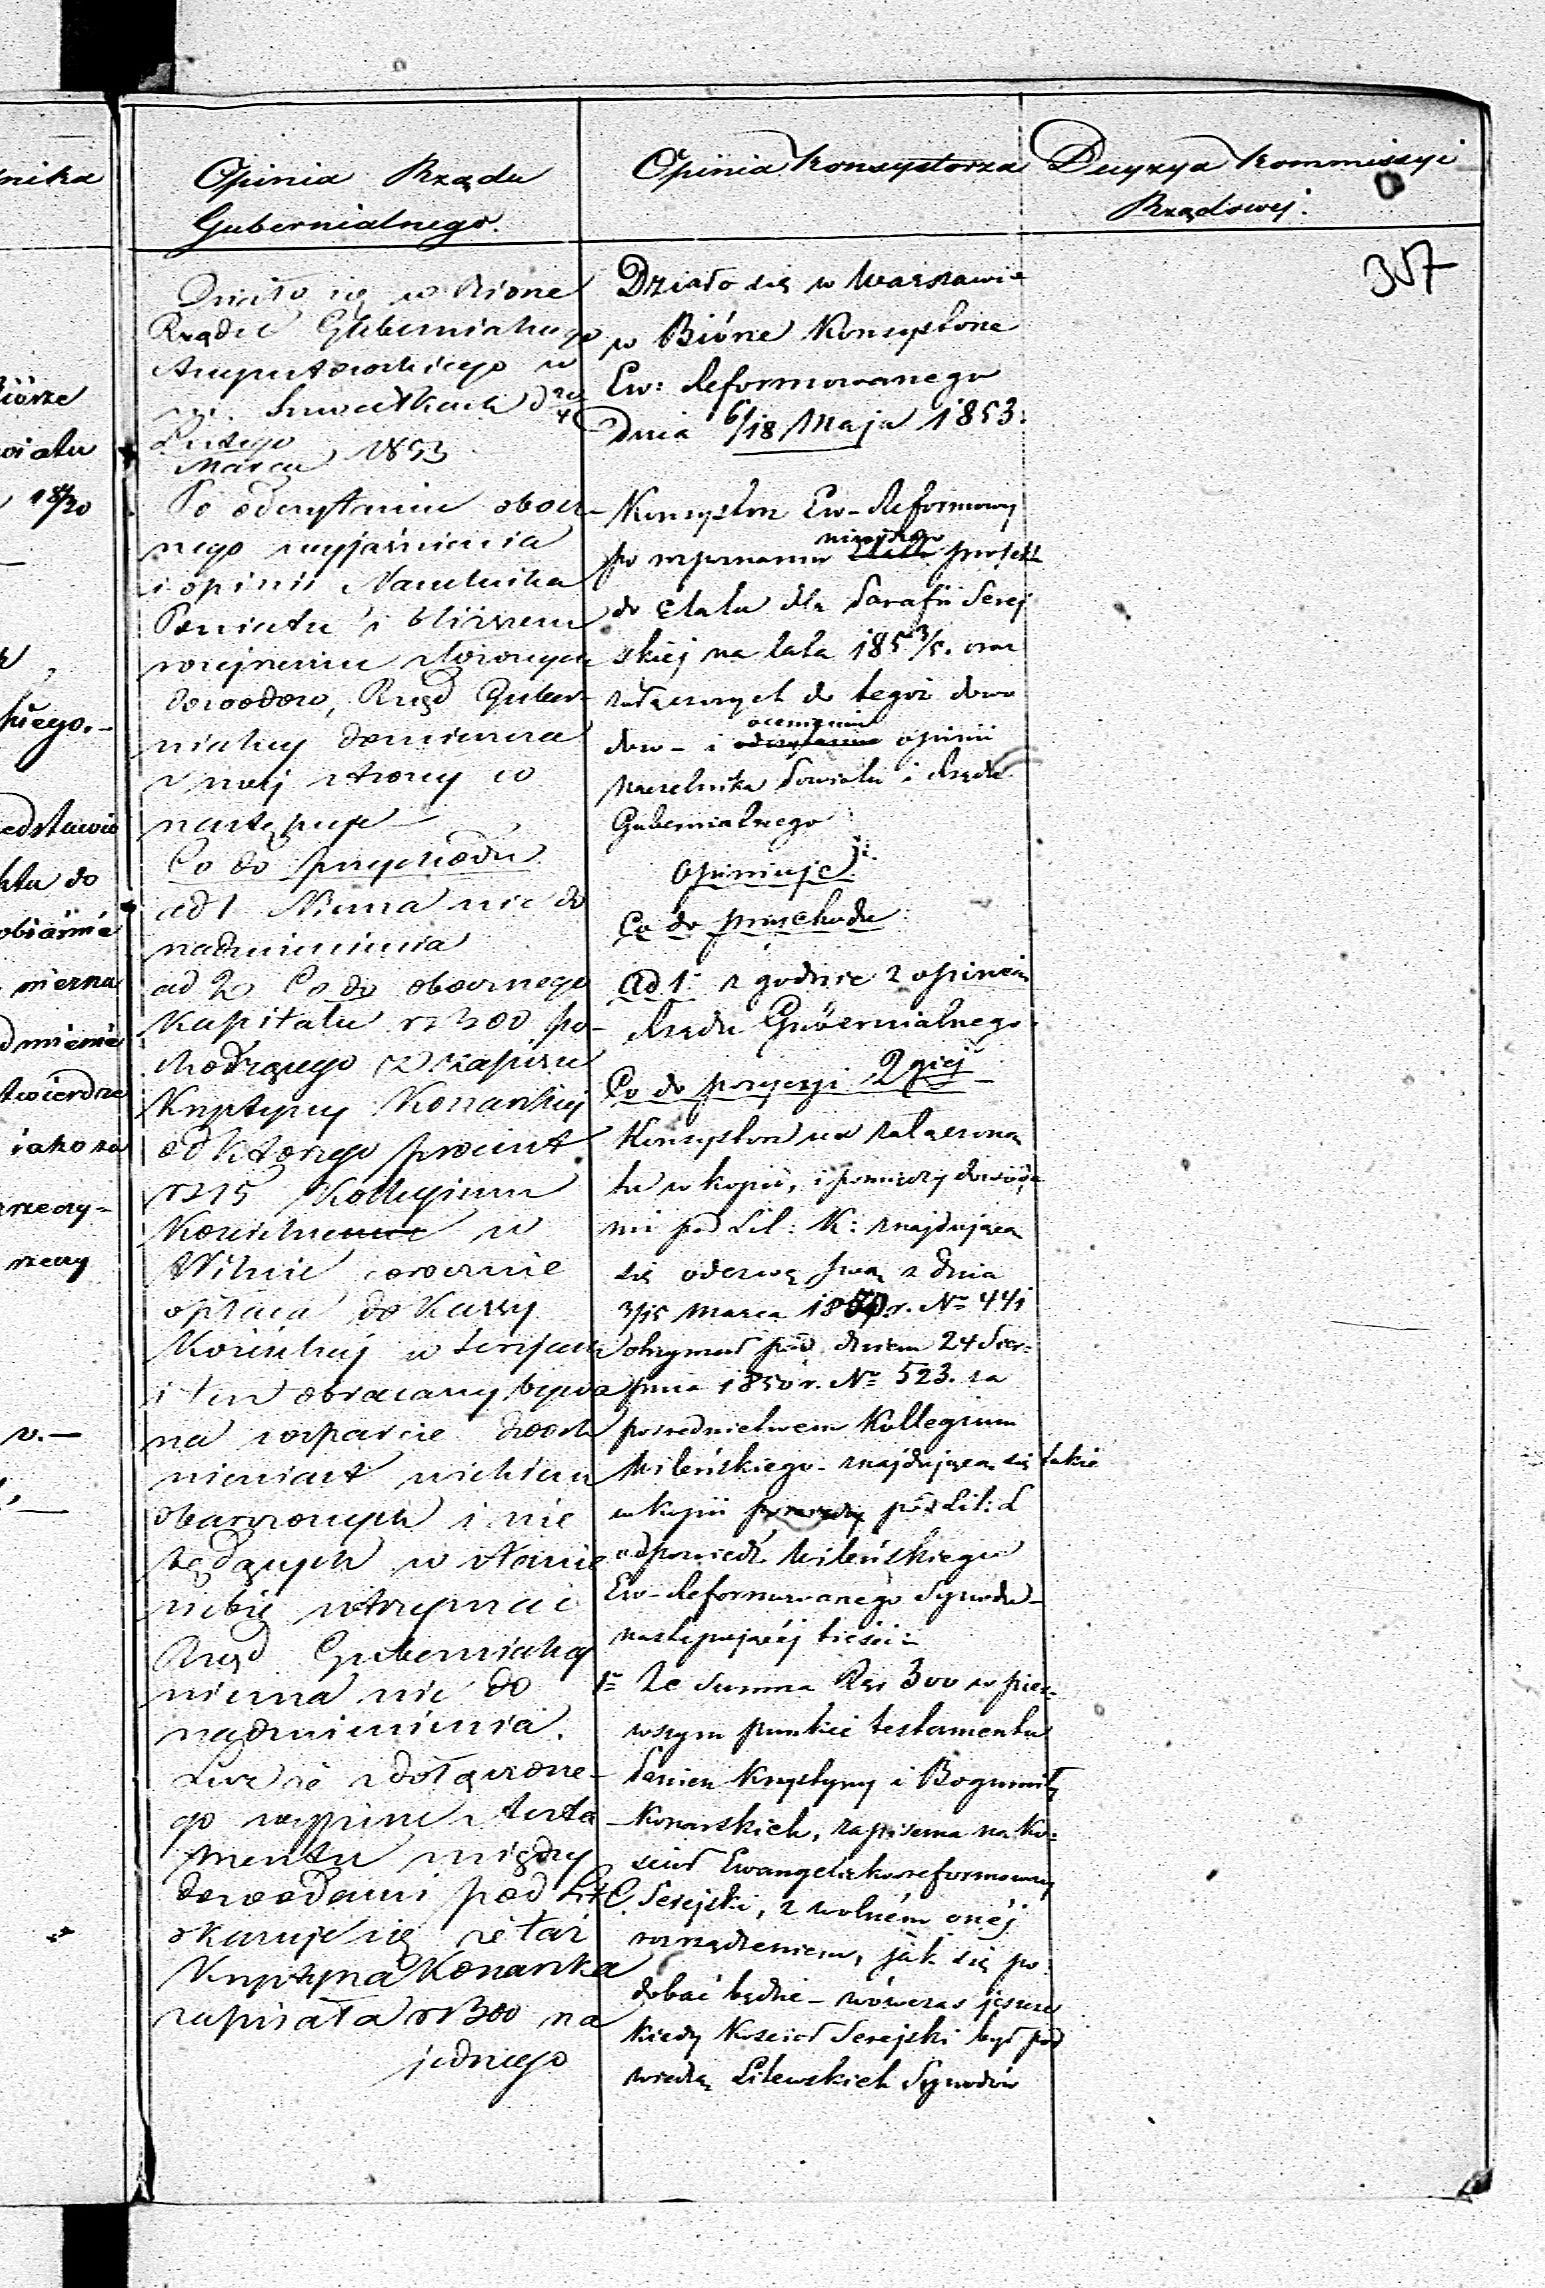 nika
Biórze
wiatu
18/20
skiego.-
edstawio
ktu do
mierna
twierdze
iako za
rzeczy-
rzeczy
v.-
Opinia Rządu
Gubernialnego.
Działo się w Biórze
Rządu Gubernialnego
Augustowskiego w
m. Suwałkach d 20/4
Lutego
Marca 1853
Po odczytaniu obecz-
nego wyjaśnienia
i opinii Naczelnika
Powiatu i bliższem
rozejrzeniu złożonych
dowodów, Rząd Guber-
nialny domieszcza
z swej strony co
następuje
Co do przychodu
ad 1 Niema nic do
nadmienienia
ad 2 Co do obecznego
Kapitału rs 300 po-
chodzącego z zapisu
Krystyny Konarskiej
od którego procent
rs 15 Kollegium
Kościelne w
Wilnie corocznie
opłaca do Kassy
Kościelnej w Serejach
i ten obracany bywa
na wsparcie dwoch
niewiast wiekiem
obarczonych i nie
będących w stanie
siebie utrzymać
Rząd Gubernialny
niema nic do
nadmienienia.
Lecz że z dołączone-
go wypisu z testa-
mentu między
dowodami pod Lit C.
okazuje się że taż
Krystyna Konarska
zapisała rs 300 na
jednego
Opinia Konsystorza
Działo się w Warszawie
w Biórze Konsystorza
Ew: Reformowanego
Dnia 6/18 Maja 1853.
Konsystorz Ew-Reformowy
po rozpoznaniu niniejszego projektu
do Etatu dla Parafii Serej
skiej na lata 185 3/5. oraz
załączonych do tegoż dowo
dow - i ocenieniu opinii
Naczelnika Powiatu i Rządu
Gubernialnego
Opiniuje
Co do przychodu
Ad 1. zgodnie z opinią
Rządu Gubernialnego
Co do pozycyi 2giej
Konsystorz na załączoną
tu w kopii, i pomiędzy dowoda
mi pod Lit: K: znajdującą
się odezwę swą z dnia
3/15 Marca 1850 r. No 441
otrzymał pod dniem 24 Sier-
pnia 1850 r. No 523. za
pośrednictwem Kollegium
Wileńskiego - znajdującą się także
w kopii pod Lit: L
odpowiedź Wileńskiego
Ew-Reformowanego Synodu -
następującéj treści:
1o Że Summa Rsr 300 w pier-
wszym punkcie testamentu
Panien Krystyny i Bogumiły
Konarskich, zapisana na Ko-
ściół Ewangelicko reformowany
Serejski, z wolném onéj
rozrządzeniem, jak się po-
dobać będzie - wówczas jeszcze
kiedy Kościoł Serejski był pod
wiedzą Litewskich Synodów
Decyzya Kommissyi
Rządowej.
357